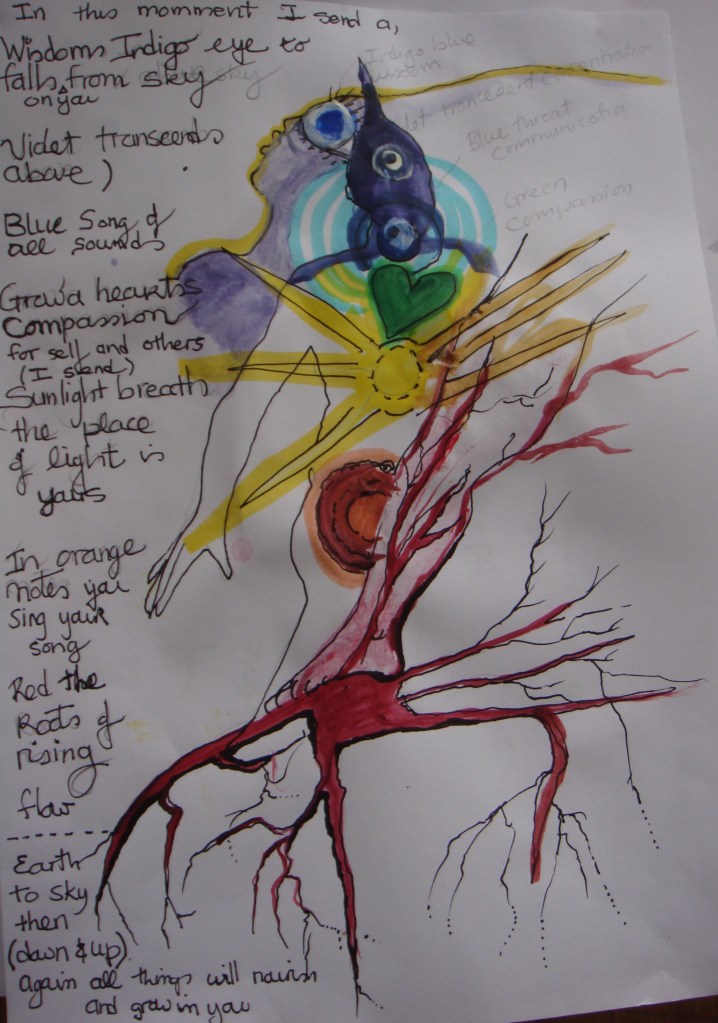 In this momment I send a,
Wisdoms Indigo eye to
falls from sky
on you
Violet transcends
above)
Blue Song of
all sounds
Green hearts
Compassion
for self and others
(I send)
Sunlight breath
the place
of light is
yours
In orange
notes you
sing your
song
Red the
Roots of
rising
flow
Earth
to sky
then
(down & up)
again all things will nourish
and grow in you
Indigo blue
wisdom
violet trancedent concentration
Blue throat
communicatia
Green
compassion